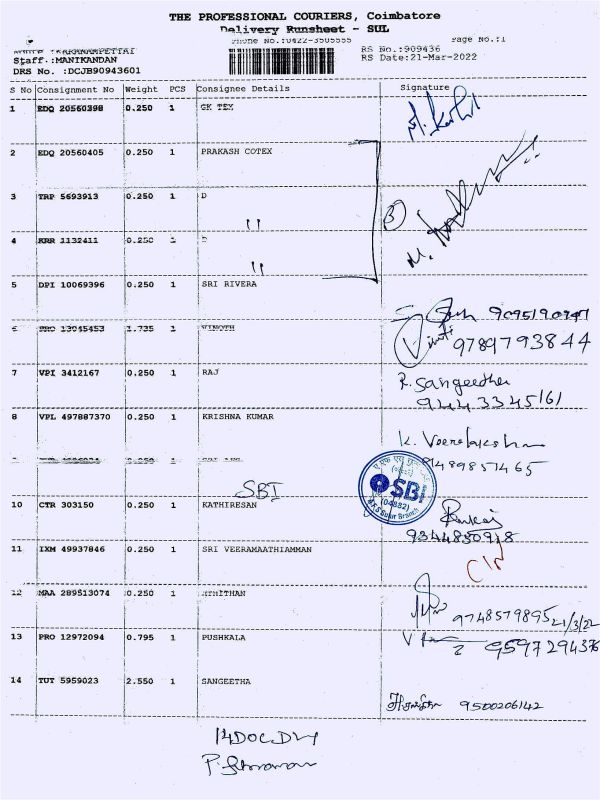 THE PROFESSIONAL COURIERS, Coimbatore
Delivery Runsheet - SUL
Phone No.:0422-3505555 Page No.:1
RS No.:909436
Staff.:MANIKANDAN RS Date:21-Mar-2022
DRS No. :DCJB90943601
S No Consignment No Weight PCS Consignee Details Signature
1 EDQ 20560398 0.250 1 GK TEX
2 EDQ 20560405 0.250 1 PRAKASH COTEX
3 TRP 5693913 0.250 1 D
"
3
4 KRR 1132411 0.250 1 D
"
5 DPI 10069396 0.250 1 SRI RIVERA
9095190941
1.735 1 VINOTH
9789793844
7 VPI 3412167 0.250 1 RAJ R. Sangeetha
9443345161
8 VPL 497887370 0.250 1 KRISHNA KUMAR
K. Veerelakshm
SBI
SBI
(04882)
Sulur Branch
10 CTR 303150 0.250 1 KATHIRESAN
9344850918
11 IXM 49937846 0.250 1 SRI VEERAMAATHIAMMAN
12 MAA 289513074 0.250 1
9748579895 21/3/22
13 PRO 12972094 0.795 1 PUSHKALA
9597294376
14 TUT 5959023 2.550 1 SANGEETHA
9500206142
14DOC.DLY